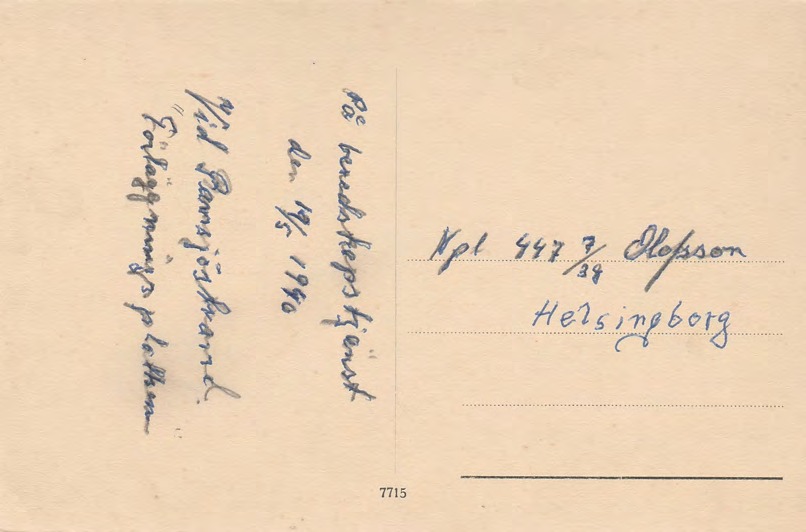 På beredskapstjänst
den 19/5 1940
Vid Ramsjöstrand.
"Förläggningsplatsen
Vpl 447 7/39 Olofsson
Helsingborg
7715